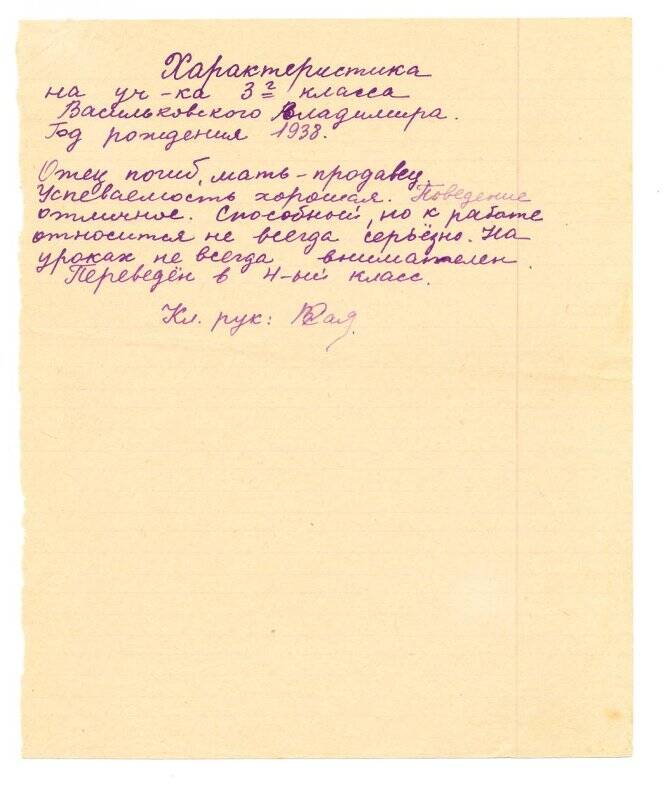 Характеристика
на уч-ка 3г класса
Васильковского Владимира.
Год рождения 1938.
Отец погиб, мать-продавец.
Успеваемость хорошая. Поведение
отличное. Способной, но к работе
относится не всегда серьёзно. На
уроках не всегда внимателен
Переведён в 4-ый класс.
Кл. рук: